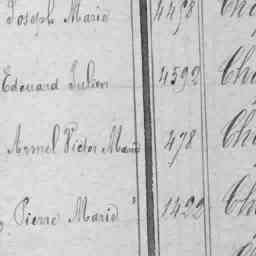 Joseph Marie 4498 Cho
Edouard Julien 4592 Cho
Armel Victor Marie 478 Cho
Pierre Marie 1422 Ch